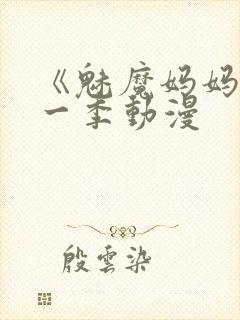 《魅魔妈妈
一季動漫
殷雲染